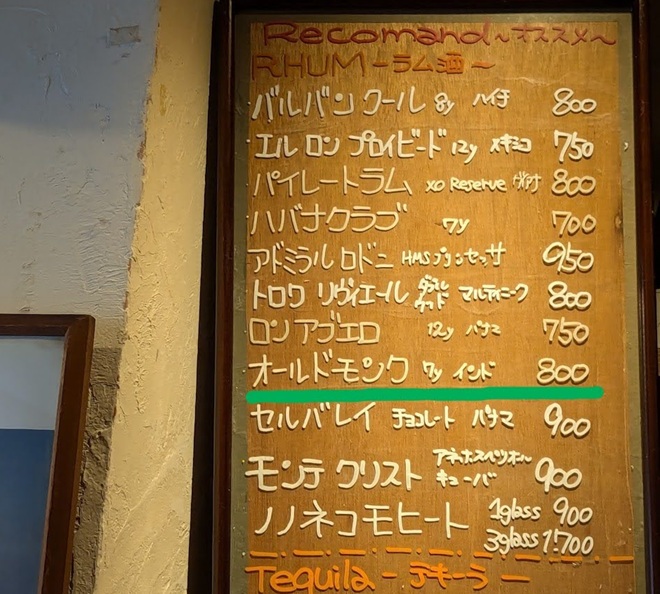 Recomand~オススメ~
RHUM-ラム酒~
バルバンクール 8y ハイチ 800
エルロン プロイビード 12y メキシコ 750
パイレートラム xo Reserve 800
ハバナクラブ 7y 700
アドミラルロドニ HMSプリンセッサ 950
トロワ リヴィエール ダブルウッド マルティニーク 800
ロンアブエロ 12y パナマ 750
オールドモンク 7y インド 800
セルバレイ チョコレート パナマ 900
モンテクリスト アネホスペシオール キューバ 900
ノノネコモヒート 1glass 900
3glass 1!700
Tequila-テキーラー